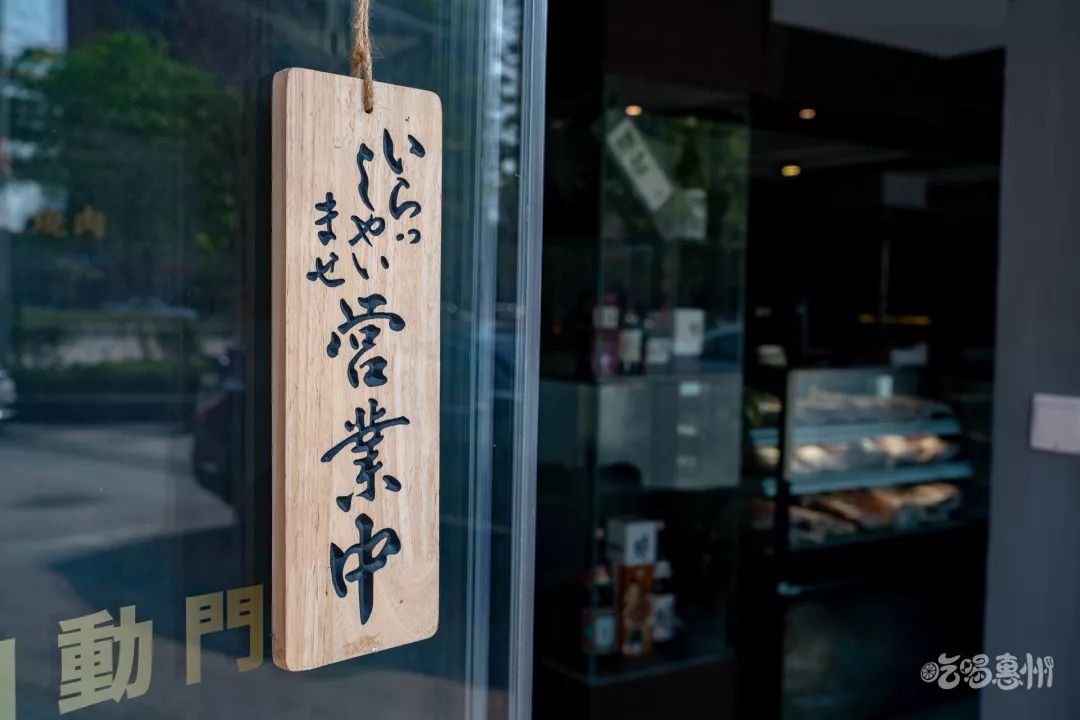 いらっ
しゃい
ませ
営業中
動門
吃喝惠州